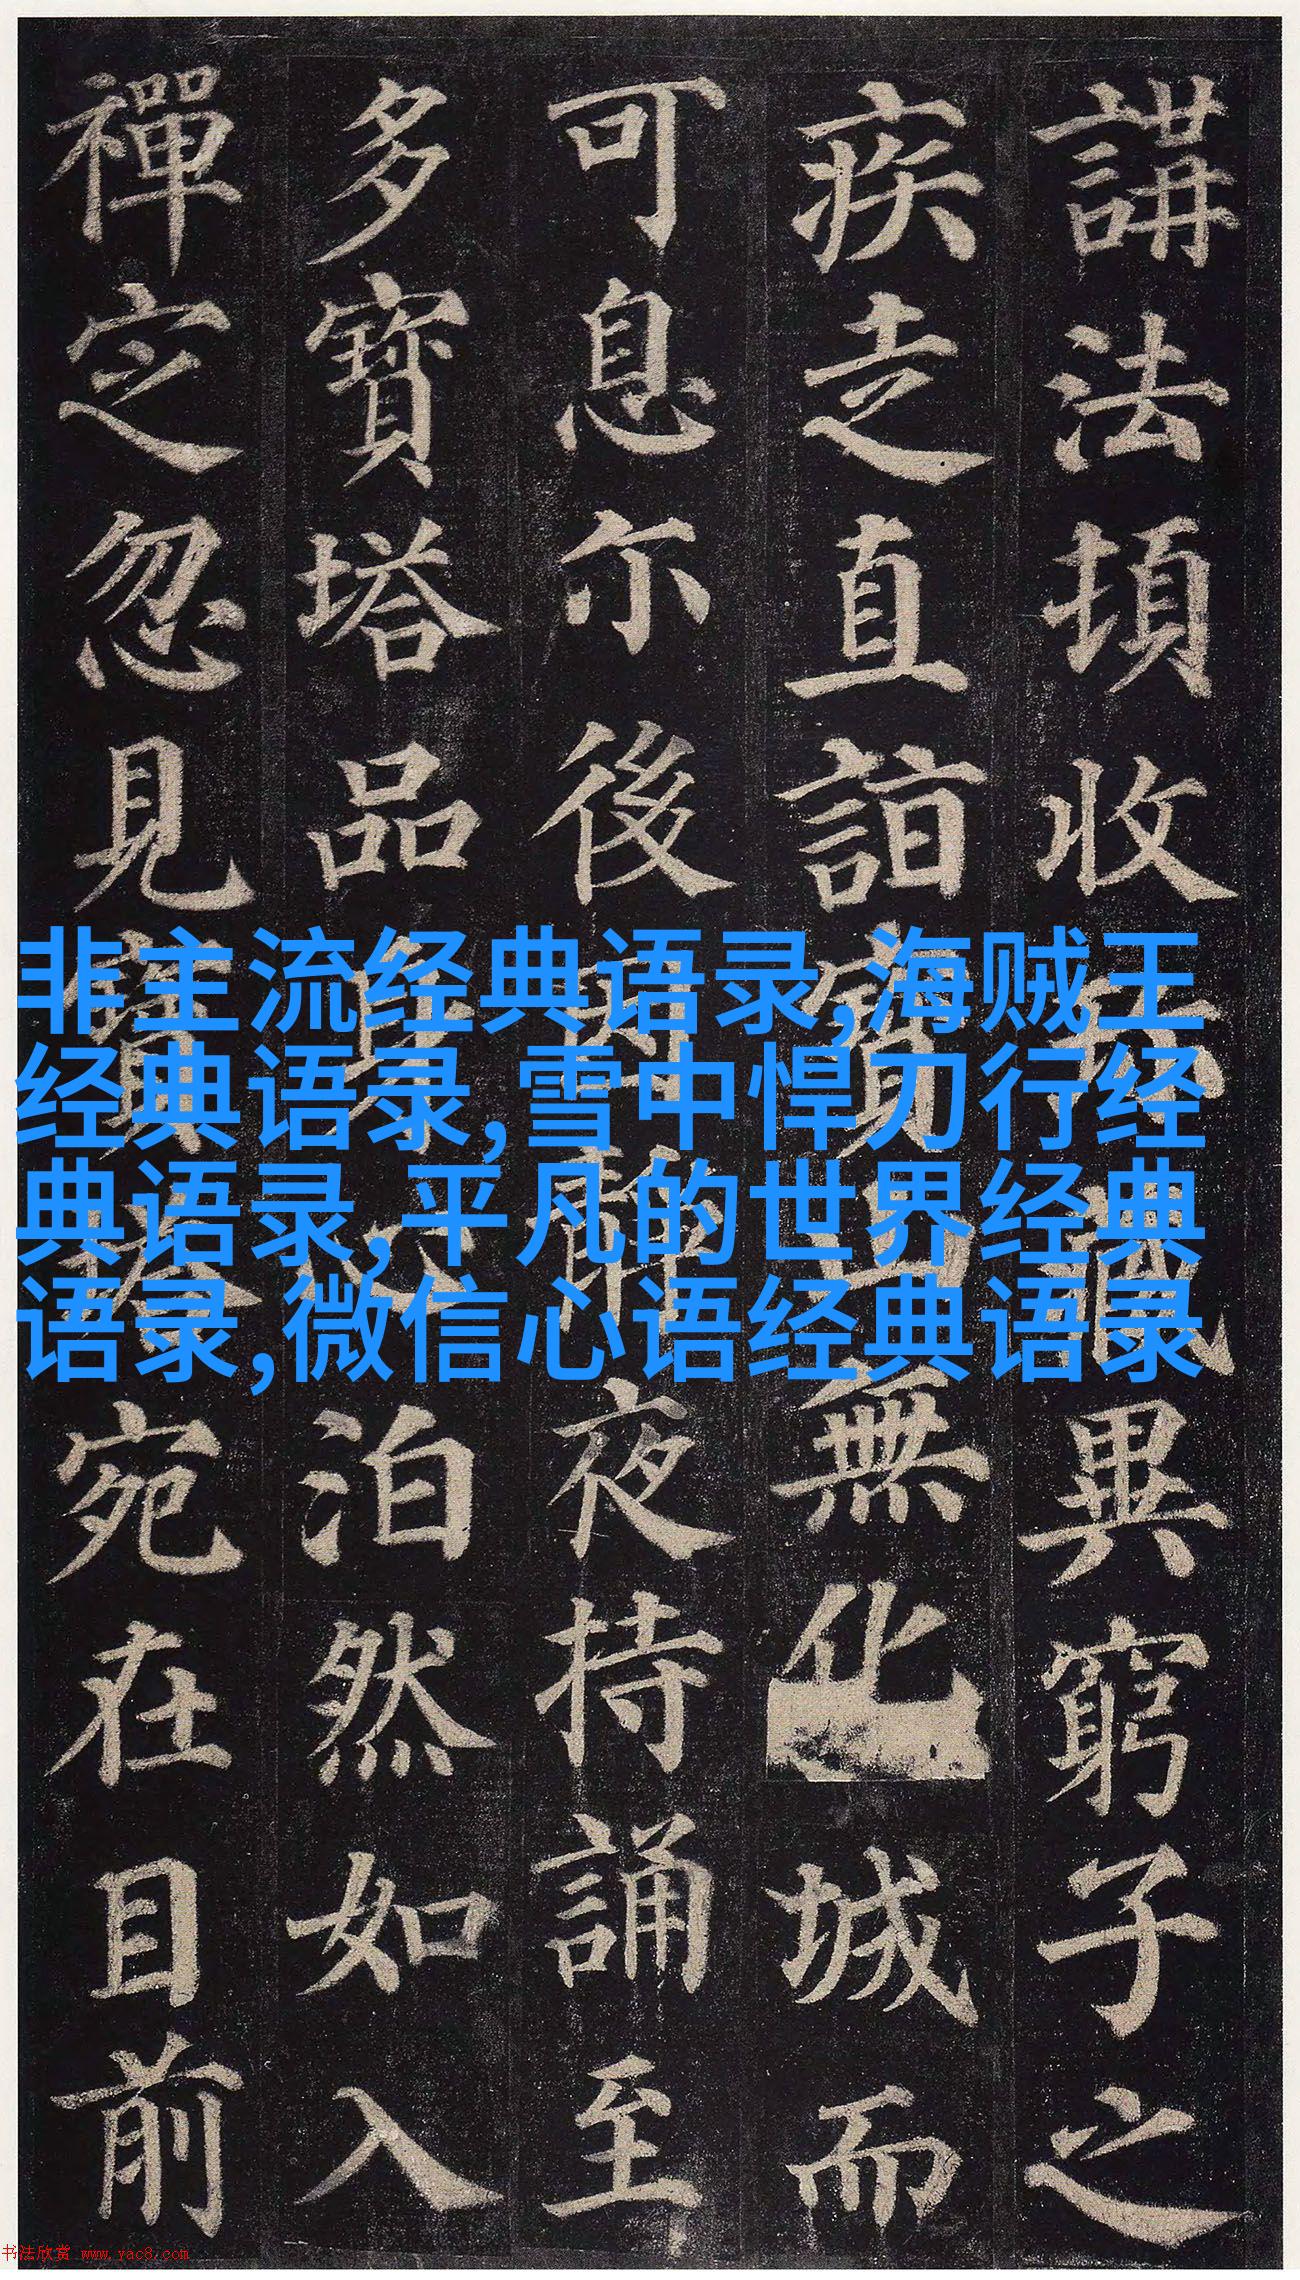 講法頓收珍藏異窮子之
疾走直詣寶山無化城而
可息尒後因靜夜持誦至
多寶塔品身心泊然如入
禪定忽見寶塔宛在目前
非主流经典语录,海贼王
经典语录,雪中悍刀行经
典语录,平凡的世界经典
语录,微信心语经典语录
书法欣赏 www.yac8.com